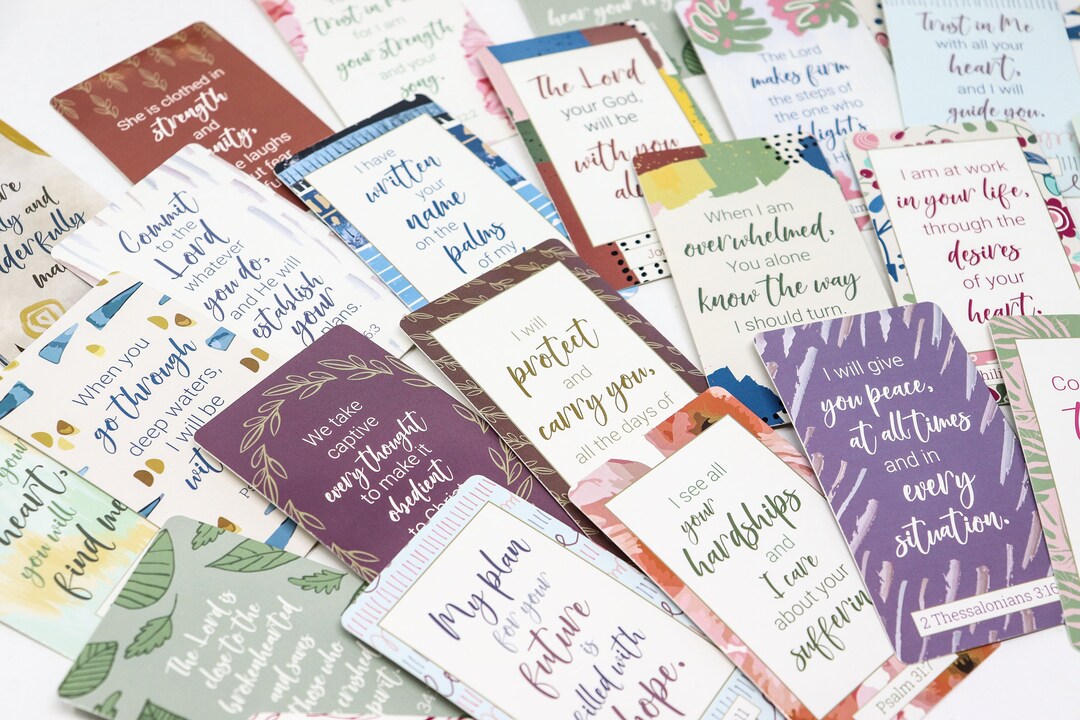 Trust in
for I am
your strength
and your
song.
hear your cry
The Lord
makes firm
the steps of
the one who
Trust in Me
with all your
heart,
and I will
guide you.
She is clothed in
strength
and
laughs
fear
The Lord
your God,
will be
with you
I have
written
your
name
on the
palms
of my
When I am
overwhelmed,
You alone
know the way
I should turn.
I am at work
in your life,
through the
desires
of your
heart.
and
Commit
to the
Lord
whatever
you do,
and He will
establish
your
plans.
I will
protect
and
carry you,
all the days of
I will give
you peace,
at all times
and in
every
situation.
2 Thessalonians 3:16
When you
go through
deep waters,
I will be
We take
captive
every thought
to make it
obedient
to
I see all
your
hardships
and
I care
about your
Psalm 31:7
heart,
you will
find me
The Lord is
close to the
brokenhearted
and saves
those who
crushed
My plan
for your
future
is
filled with
hope.